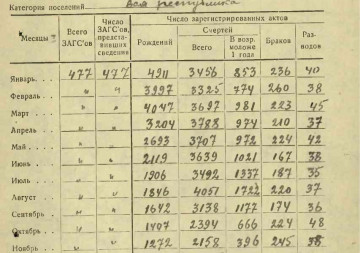 Категория поселений Вся республика
Месяцы Всего ЗАГС'ов Число ЗАГС'ов, представивших сведения Число зарегистрированных актов
Рождений Смертей Браков Разводов
Всего В возр. моложе 1 года
Январь 477 477 4911 3456 853 236 40
Февраль " " 3997 3325 774 260 38
Март " " 4047 3697 981 223 45
Апрель " " 3204 3788 974 210 37
Май " " 2693 3707 972 224 42
Июнь " " 2119 3639 1021 167 38
Июль " " 1906 3492 1337 187 35
Август " " 1846 4051 1722 220 37
Сентябрь " " 1642 3138 1177 174 36
Октябрь " " 1407 2394 666 224 48
Ноябрь " " 1272 2158 396 245 38